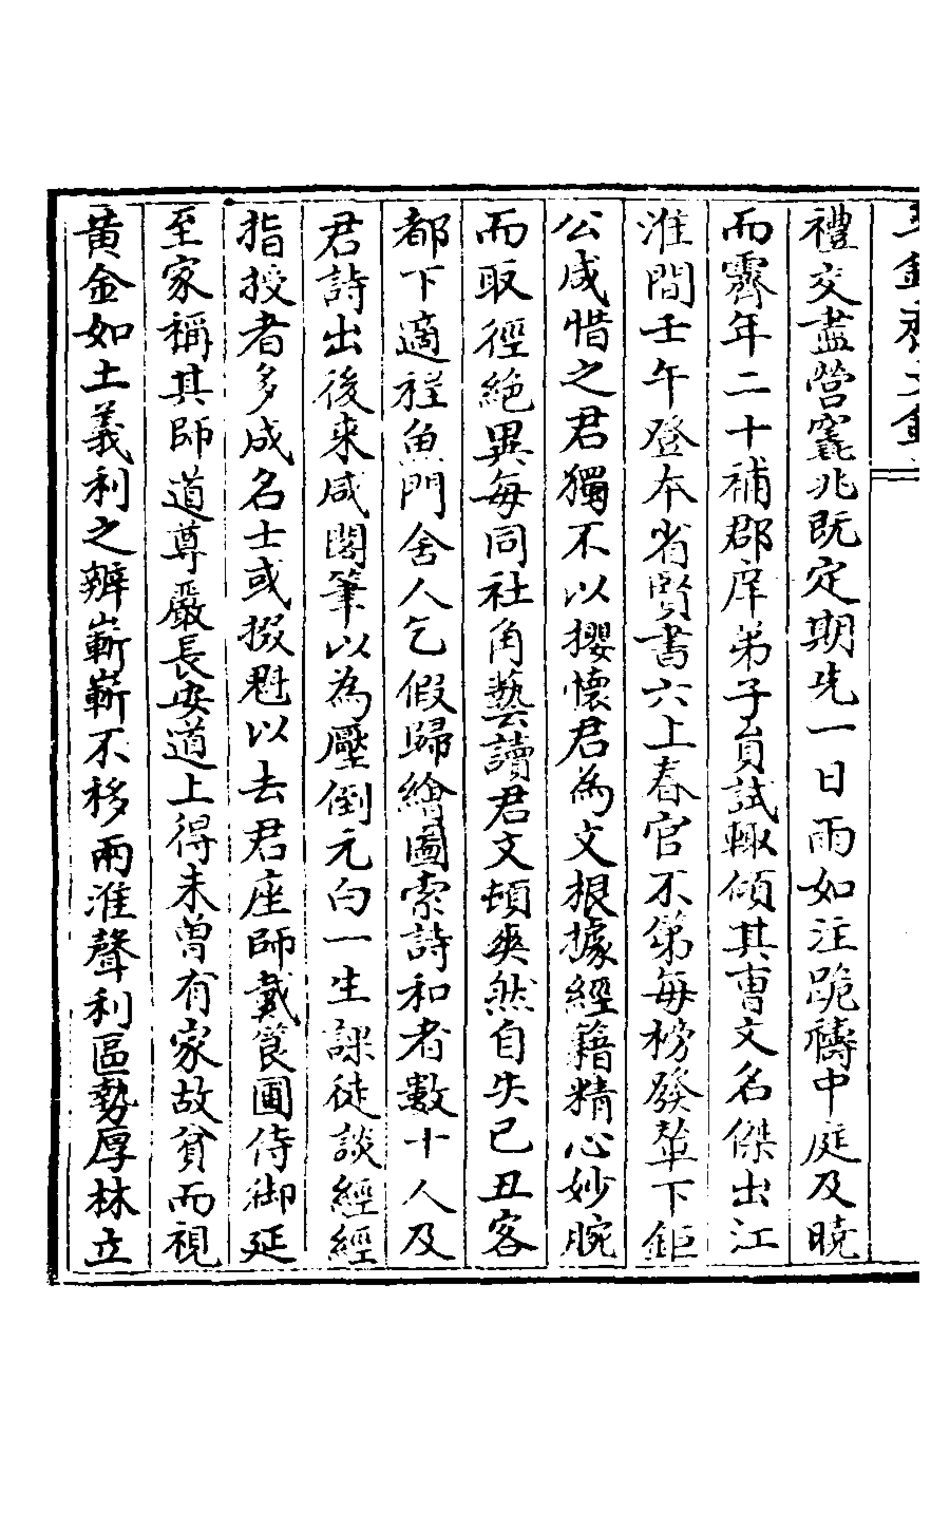 禮交盡營窀兆既定期先一日雨如注跪禱中庭及曉
而霽年二十補郡庠弟子員試輙傾其曹文名傑出江
淮間壬午登本省賢書六上春官不第每榜發輦下鉅
公咸惜之君獨不以攖懷君為文根據經籍精心妙腕
而取徑絕異每同社角藝讀君文頓爽然自失己丑客
都下適程魚門舍人乞假歸繪圖索詩和者數十人及
君詩出後来咸閣筆以為壓倒元白一生課徒談經經
指授者多成名士或掇魁以去君座師戴筤圃侍御延
至家稱其師道尊嚴長安道上得未曽有家故貧而視
黃金如土義利之辨嶄嶄不移兩淮聲利區勢厚林立